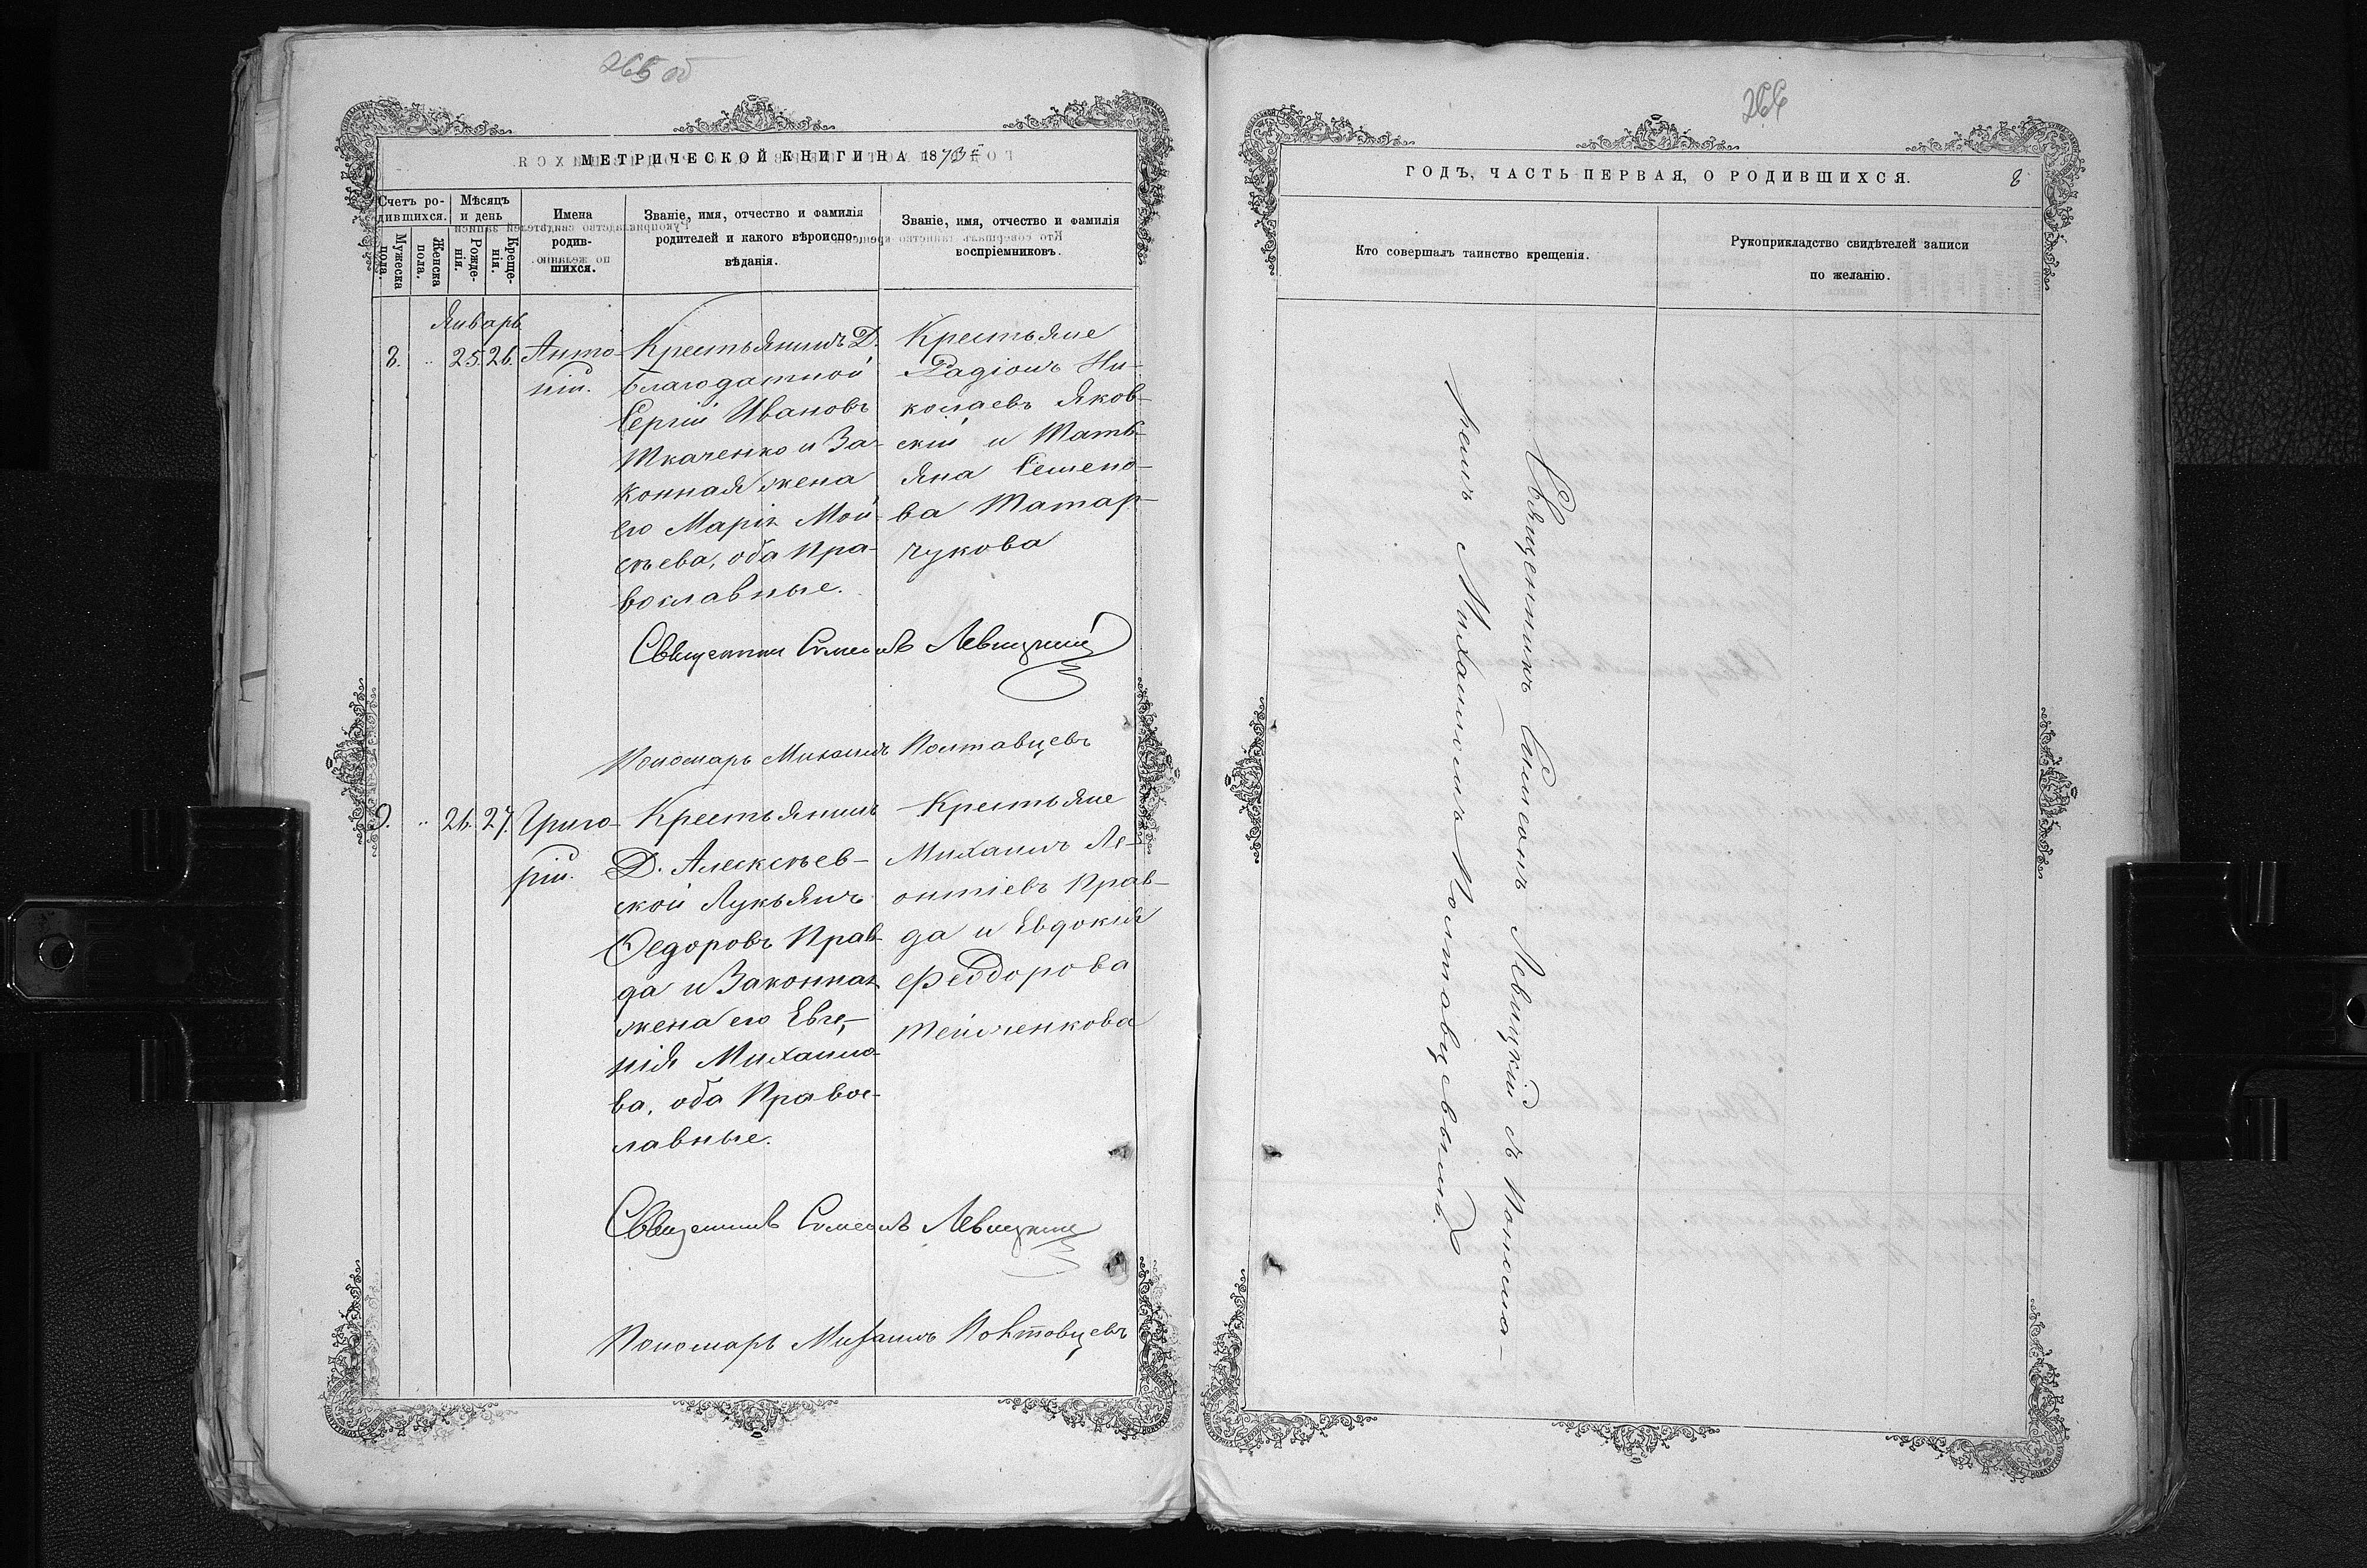 265 об
МЕТРИЧЕСКОЙ КНИГИ НА 1873 й
Счетъ ро-
дившихся.
Мужеска
пола.
Женска
пола.
Мѣсяцъ
и день
Рожде-
нія.
Креще-
нія.
Имена
родив-
шихся.
Званіе, имя, отчество и фамилія
родителей и какого вѣроиспо-
вѣданія.
Званіе, имя, отчество и фамилія
воспріемниковъ.
Январь
8. " 25. 26. Анто-
ній.
Крестьянинъ Д.
Благодатной
Сергій Ивановъ
Ткаченко и За-
конная жена
его Марія Мой-
сѣева, оба пра-
вославные.
Крестьяне
Радіонъ Ни-
колаевъ Яков-
скій и Тать-
яна Семено-
ва Татар-
чукова
Священникъ Симеонъ Левицкій
Пономарь Михаилъ Полтавцевъ
9. " 26. 27. Григо-
рій.
Крестьянинъ
Д. Алексѣев-
ской Лукьянъ
Федоровъ Прав-
да и Законная
жена его Евге-
нія Михайло-
ва, оба Правос-
лавные.
Крестьяне
Михаилъ Ле-
онтіевъ Прав-
да и Евдокія
Феодорова
Священникъ Симеонъ Левицкій
Пономарь Михаилъ Полтавцевъ
266
ГОДЪ, ЧАСТЬ ПЕРВАЯ, О РОДИВШИХСЯ.
8
Кто совершалъ таинство крещенія.
Рукоприкладство свидѣтелей записи
по желанію.
Священникъ Симеонъ Левицкій съ Понома-
ремъ Михаиломъ Полтавцевымъ.